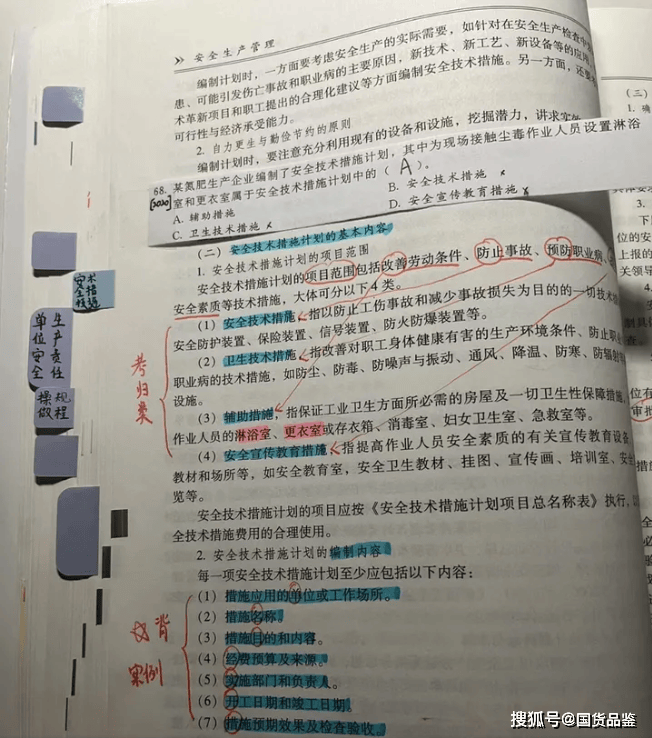 安全生产管理
编制计划时，一方面要考虑安全生产的实际需要，如针对在安全生产检查中
患、可能引发伤亡事故和职业病的主要原因，新技术、新工艺、新设备等的应用，
术革新项目和职工提出的合理化建议等方面编制安全技术措施。另一方面，还要
可行性与经济承受能力。
2. 自力更生与勤俭节约的原则
编制计划时，要注意充分利用现有的设备和设施，挖掘潜力，讲求实
68. 某氮肥生产企业编制了安全技术措施计划，其中为现场接触尘毒作业人员设置淋浴
[2020] 室和更衣室属于安全技术措施计划中的（ A ）。
A. 辅助措施
B. 安全技术措施 ×
C. 卫生技术措施 ×
D. 安全宣传教育措施 ×
（二）安全技术措施计划的基本内容
1. 安全技术措施计划的项目范围
安全技术措施计划的项目范围包括改善劳动条件、防止事故、预防职业病、
安全素质等技术措施，大体可分以下4类。
（1）安全技术措施，指以防止工伤事故和减少事故损失为目的的一切技术
安全防护装置、保险装置、信号装置、防火防爆装置等。
（2）卫生技术措施，指改善对职工身体健康有害的生产环境条件、防止职业
职业病的技术措施，如防尘、防毒、防噪声与振动、通风、降温、防寒、防辐射等
设施。
（3）辅助措施，指保证工业卫生方面所必需的房屋及一切卫生性保障措施，
作业人员的淋浴室、更衣室或存衣箱、消毒室、妇女卫生室、急救室等。
（4）安全宣传教育措施，指提高作业人员安全素质的有关宣传教育设备
教材和场所等，如安全教育室，安全卫生教材、挂图、宣传画、培训室、安全
览等。
安全技术措施计划的项目应按《安全技术措施计划项目总名称表》执行，以
全技术措施费用的合理使用。
2. 安全技术措施计划的编制内容
每一项安全技术措施计划至少应包括以下内容：
（1）措施应用的单位或工作场所。
（2）措施名称。
（3）措施目的和内容。
（4）经费预算及来源。
（5）实施部门和负责人。
（6）开工日期和竣工日期。
（7）措施预期效果及检查验收。
考归类
背
案例
生产责任
单位安全
操规
做程
（三）
3.
下
位的安
上报的
关领导
4.
搜狐号@国货品鉴